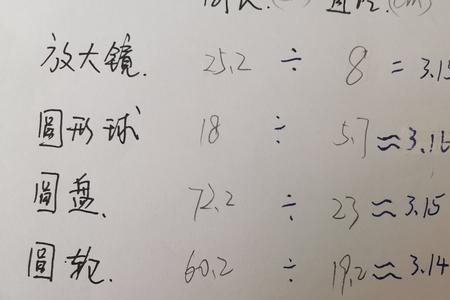 (cm)
放大镜. 25.2 ÷ 8 = 3.15
圆形球 18 ÷ 5.7 ≈ 3.16
圆盘. 72.2 ÷ 23 ≈ 3.15
圆轮. 60.2 ÷ 19.2 ≈ 3.14